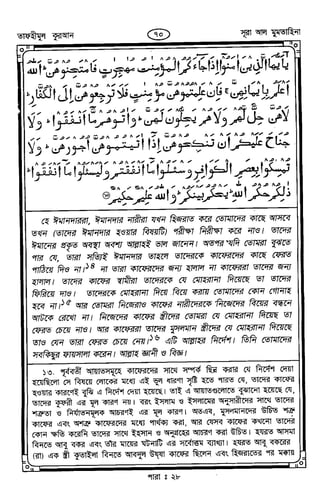 তাফহীমুল কুরআন
৭৩
সূরা আল মুমতাহিনা
يٰۤاَيُّهَا الَّذِيْنَ اٰمَنُوْۤا اِذَا جَآءَكُمُ الْمُؤْمِنٰتُ مُهٰجِرٰتٍ فَامْتَحِنُوْهُنَّ ؕ اَللّٰهُ
اَعْلَمُ بِاِيْمَانِهِنَّ ۚ فَاِنْ عَلِمْتُمُوْهُنَّ مُؤْمِنٰتٍ فَلَا تَرْجِعُوْهُنَّ اِلَى الْكُفَّارِ ؕ
لَا هُنَّ حِلٌّ لَّهُمْ وَلَا هُمْ يَحِلُّوْنَ لَهُنَّ ؕ وَاٰتُوْهُمْ مَّاۤ اَنْفَقُوْا ؕ وَلَا
جُنَاحَ عَلَيْكُمْ اَنْ تَنْكِحُوْهُنَّ اِذَاۤ اٰتَيْتُمُوْهُنَّ اُجُوْرَهُنَّ ؕ وَلَا
تُمْسِكُوْا بِعِصَمِ الْكَوَافِرِ وَسْئَلُوْا مَاۤ اَنْفَقْتُمْ وَلْيَسْئَلُوْا مَاۤ اَنْفَقُوْا ؕ
ذٰلِكُمْ حُكْمُ اللّٰهِ ؕ يَحْكُمُ بَيْنَكُمْ ؕ وَاللّٰهُ عَلِيْمٌ حَكِيْمٌ
হে ঈমানদাররা, ঈমানদার নারীরা যখন হিজরাত করে তোমাদের কাছে আসবে
তখন (তাদের ঈমানদার হওয়ার বিষয়টি) পরীক্ষা নিরীক্ষা করে নাও। তাদের
ঈমানের প্রকৃত অবস্থা অবশ্য আল্লাহই ভাল জানেন। অতপর যদি তোমরা বুঝতে
পার যে, তারা সত্যিই ঈমানদার তাহলে তাদেরকে কাফেরদের কাছে ফেরত
পাঠিয়ে দিও না।১৪ না তারা কাফেরদের জন্য হালাল না কাফেররা তাদের জন্য
হালাল। তাদের কাফের স্বামীরা তাদেরকে যে মোহরানা দিয়েছে তা তাদের
ফিরিয়ে দাও। তাদেরকে মোহরানা দিয়ে বিয়ে করায় তোমাদের কোন গোনাহ
হবে না।১৫ আর তোমরা নিজেরাও কাফের নারীদেরকে নিজেদের বিয়ের বন্ধনে
আটকে রেখো না। নিজেদের কাফের স্ত্রীদের তোমরা যে মোহরানা দিয়েছ তা
ফেরত চেয়ে নাও। আর কাফেররা তাদের মুসলমান স্ত্রীদের যে মোহরানা দিয়েছে
তাও যেন তারা ফেরত চেয়ে নেয়।১৬ এটি আল্লাহর নির্দেশ। তিনি তোমাদের
সবকিছুর ফায়সালা করেন। আল্লাহ জ্ঞানী ও বিজ্ঞ।
১৩. পূর্ববর্তী আয়াতসমূহে কাফেরদের সাথে সম্পর্ক ছিন্ন করার যে নির্দেশ দেয়া
হয়েছিলো সে বিষয়ে লোকের মধ্যে এই ভুল ধারণা সৃষ্টি হতে পারত যে, তাদের কাফের
হওয়ার কারণেই বুঝি এ নির্দেশ দেয়া হয়েছে। তাই এ আয়াতগুলোতে বুঝানো হয়েছে যে,
তাদের কুফরী এর মূল কারণ নয়। বরং ইসলাম ও ইসলামের অনুসারীদের সাথে তাদের
শত্রুতা ও নির্যাতনমূলক আচরণই এর মূল কারণ। অতএব, মুসলমানদের উচিত শত্রু
কাফের এবং অশত্রু কাফেরদের মধ্যে পার্থক্য করা, আর যেসব কাফের কখনো তাদের
কোন ক্ষতি করেনি তাদের সাথে ইহসান ও অনুগ্রহের আচরণ করা উচিত। হযরত আসমা
বিনতে আবু বকর এবং তাঁর মায়ের ঘটনাটি এর সর্বোত্তম ব্যাখ্যা। হযরত আবু বকরের
(রা) এক স্ত্রী কুতাইলা বিনতে আবদুল উয্যা কাফের ছিলেন এবং হিজরাতের পর মক্কায়
পারা : ২৮